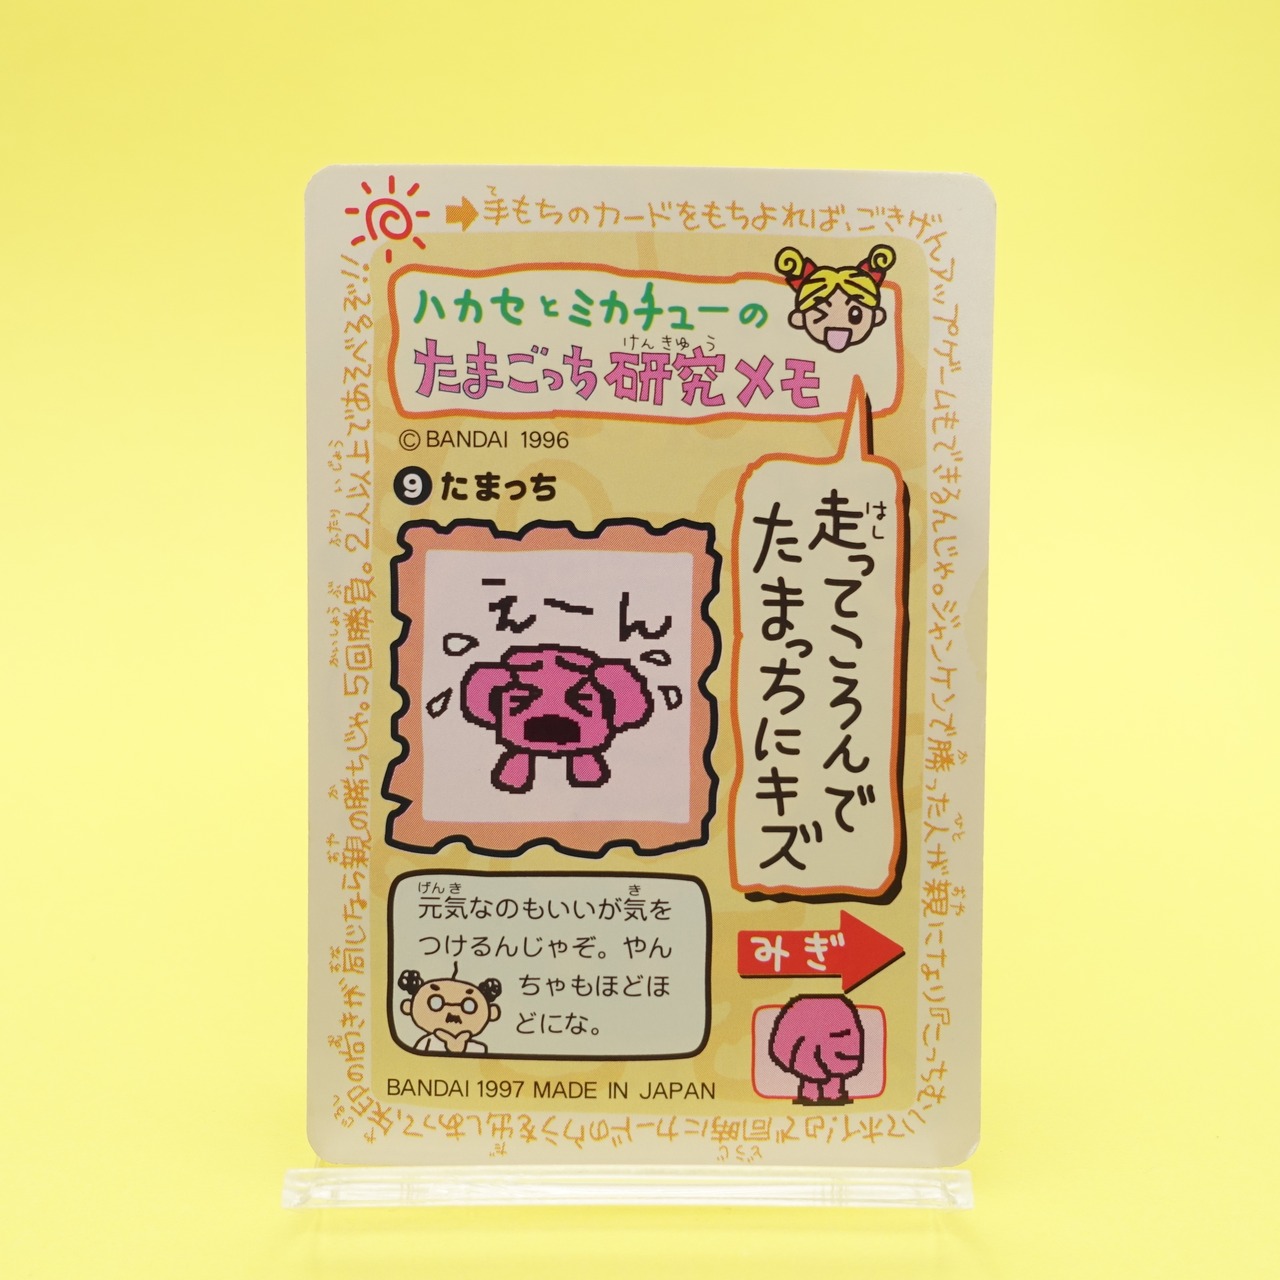 手もちのカードをもちよれば、ごきげんアップゲームもできるんじゃ。ジャンケンで勝った人が親になり『こっちむいてホイ!』で同時にカードのウラを出しあって、矢印の向きが同じなら親の勝ちじゃ。5回勝負。2人以上であそべるぞ!!
ハカセとミカチューの
たまごっち研究メモ
けんきゅう
©BANDAI 1996
9 たまっち
えーん
走ってころんで
はし
たまっちにキズ
げんき き
元気なのもいいが気を
つけるんじゃぞ。やん
ちゃもほどほ
どにな。
みぎ
BANDAI 1997 MADE IN JAPAN